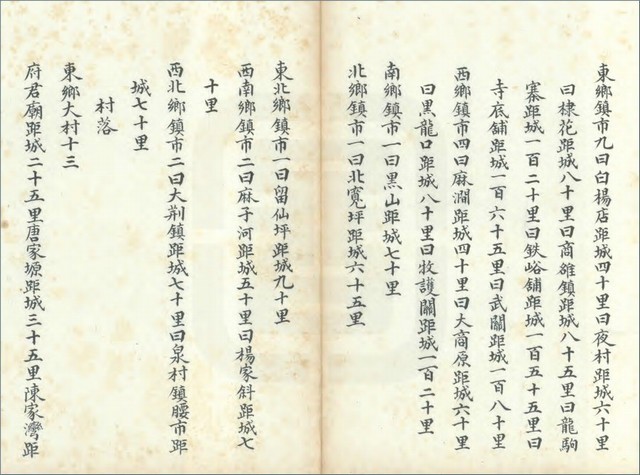 東鄉鎮市九曰白楊店距城四十里曰夜村距城六十里
曰棣花距城八十里曰商雒鎮距城八十五里曰龍駒
寨距城一百二十里曰鉄峪舖距城一百五十五里曰
寺底舖距城一百六十五里曰武關距城一百八十里
西鄉鎮市四曰麻澗距城四十里曰大商原距城六十里
曰黑龍口距城八十里曰牧護關距城一百二十里
南鄉鎮市一曰黑山距城七十里
北鄉鎮市一曰北寬坪距城六十五里
東北鄉鎮市一曰留仙坪距城九十里
西南鄉鎮市二曰麻子河距城五十里曰楊家斜距城七
十里
西北鄉鎮市二曰大荆鎮距城七十里曰泉村鎮腰市距
城七十里
村落
東鄉大村十三
府君廟距城二十五里唐家塬距城三十五里陳家灣距